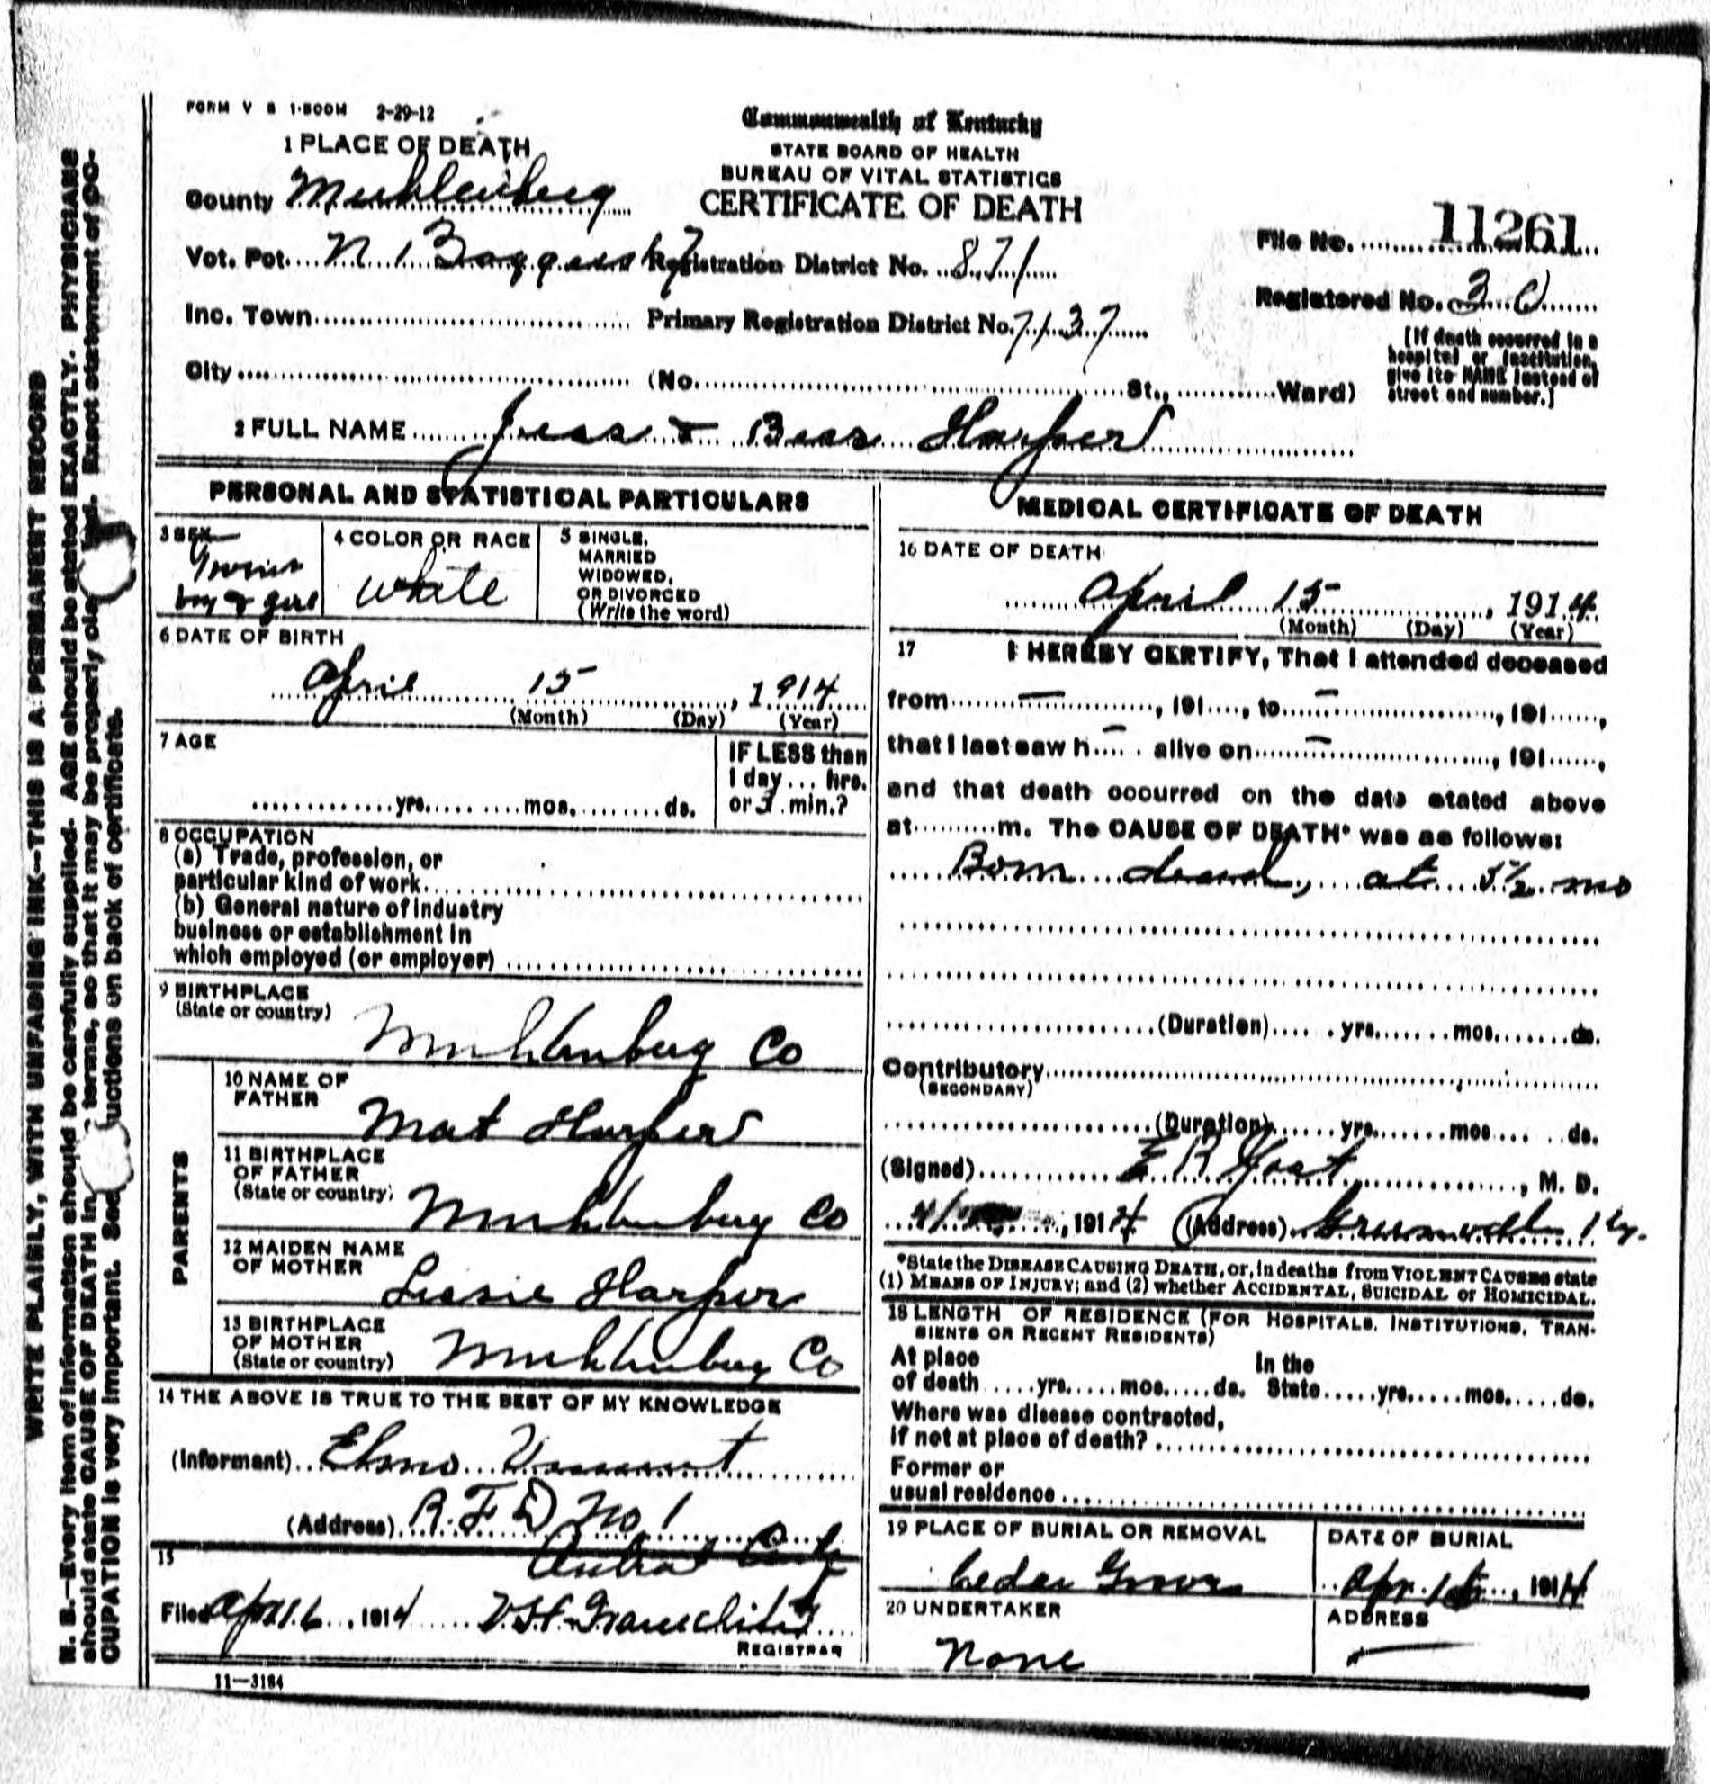 FORM V S 1-500M 2-29-12
1 PLACE OF DEATH
Commonwealth of Kentucky
STATE BOARD OF HEALTH
BUREAU OF VITAL STATISTICS
CERTIFICATE OF DEATH
County Muhlenberg
File No. 11261
Vot. Pct. N. Registration District No. 871
Registered No. 30
Inc. Town Primary Registration District No. 7137
[If death occurred in a hospital or institution, give its NAME instead of street and number.]
City (No. St., Ward)
2 FULL NAME Jess & Bess Harper
PERSONAL AND STATISTICAL PARTICULARS
3 SEX
Twins
boy & girl
4 COLOR OR RACE
White
5 SINGLE,
MARRIED
WIDOWED,
OR DIVORCED
(Write the word)
6 DATE OF BIRTH
April 15, 1914
(Month) (Day) (Year)
7 AGE
yrs. mos. ds.
IF LESS than
1 day... hrs.
or min.?
8 OCCUPATION
(a) Trade, profession, or
particular kind of work
(b) General nature of industry
business or establishment in
which employed (or employer)
9 BIRTHPLACE
(State or country)
Muhlenburg Co
PARENTS
10 NAME OF
FATHER
Mat Harper
11 BIRTHPLACE
OF FATHER
(State or country)
Muhlenburg Co
12 MAIDEN NAME
OF MOTHER
Lissie Harper
13 BIRTHPLACE
OF MOTHER
(State or country)
Muhlenburg Co
14 THE ABOVE IS TRUE TO THE BEST OF MY KNOWLEDGE
(Informant) Elmo
(Address) R. F. D No 1
15
Filed Apr 16, 1914
REGISTRAR
11—3184
MEDICAL CERTIFICATE OF DEATH
16 DATE OF DEATH
April 15, 1914
(Month) (Day) (Year)
17 I HEREBY CERTIFY, That I attended deceased
from — , 191 , to — , 191 ,
that I last saw h — alive on — , 191 ,
and that death occurred on the date stated above
at m. The CAUSE OF DEATH* was as follows:
Born dead, at 5½ mo
(Duration) yrs. mos. ds.
Contributory
(SECONDARY)
(Duration) yrs. mos. ds.
(Signed) E R , M. D.
4/ , 1914 (Address) Ky.
*State the DISEASE CAUSING DEATH, or, in deaths from VIOLENT CAUSES state
(1) MEANS OF INJURY; and (2) whether ACCIDENTAL, SUICIDAL or HOMICIDAL.
18 LENGTH OF RESIDENCE (FOR HOSPITALS, INSTITUTIONS, TRAN-
SIENTS OR RECENT RESIDENTS)
At place In the
of death yrs. mos. ds. State yrs. mos. ds.
Where was disease contracted,
if not at place of death?
Former or
usual residence
19 PLACE OF BURIAL OR REMOVAL
Cedar Grove
DATE OF BURIAL
Apr. , 1914
20 UNDERTAKER
None
ADDRESS
WRITE PLAINLY, WITH UNFADING INK—THIS IS A PERMANENT RECORD
N. B.—Every item of information should be carefully supplied. AGE should be stated EXACTLY. PHYSICIANS
should state CAUSE OF DEATH in terms, so that it may be properly Exact statement of OC-
CUPATION is very important. See uctions on back of certificate.